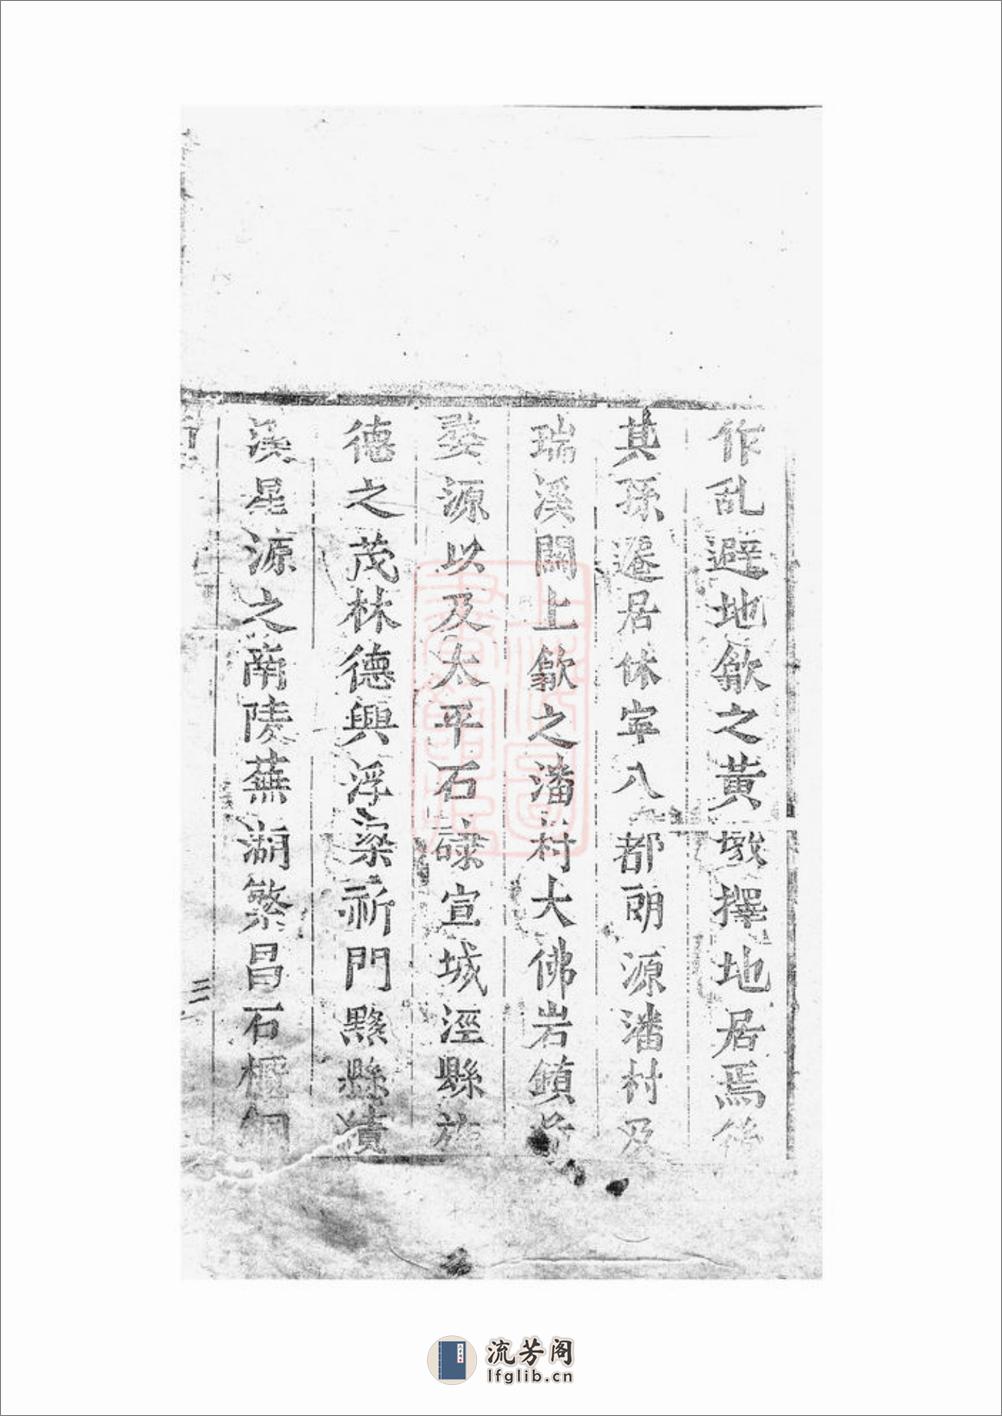 作乱避地歙之黄墩擇地居焉後
其孫遷居休寕八都朗源潘村及
瑞溪閞上歙之潘村大佛岩鎮
婺源以及太平石碌宣城涇縣旌
德之茂林德興浮梁祈門黟縣績
溪星源之南陵蕪湖繁昌石桐
三
上海圖書館藏
流芳阁
lfglib.cn